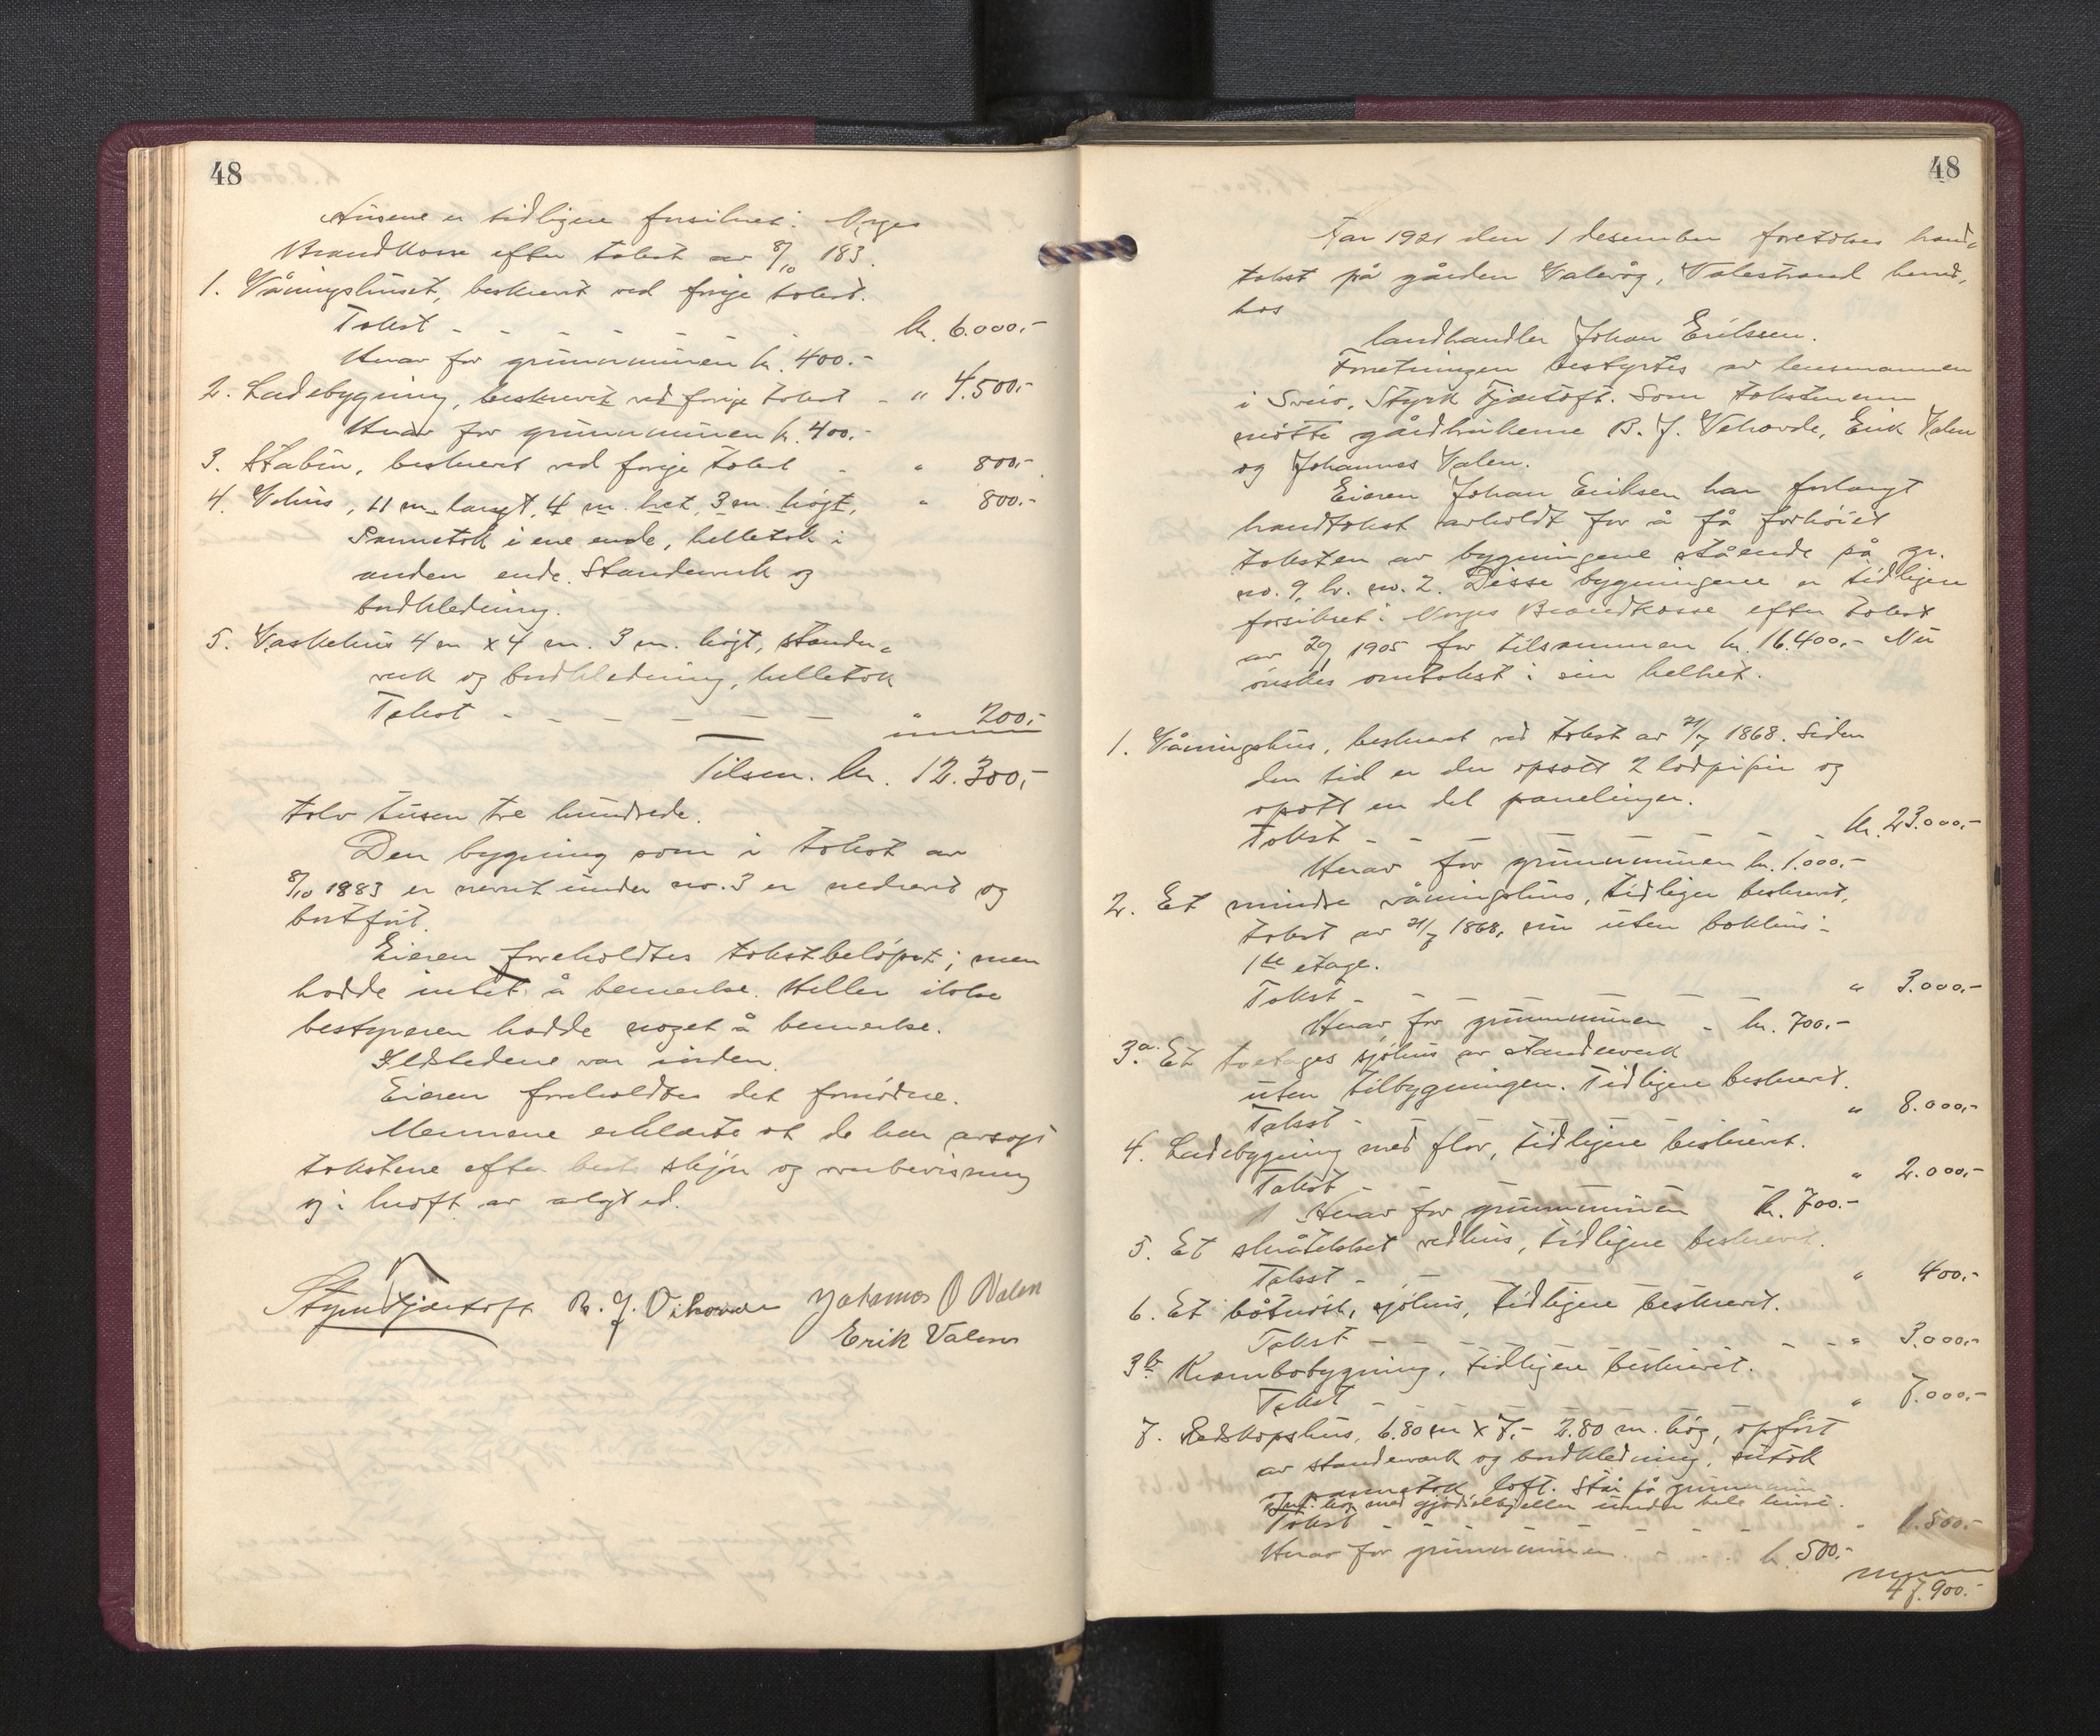 48
Husene er tidligere forsikret i Norges
Brandkasse efter takst av 8/10 183.
1. Våningshuset, beskrevet ved forrige takst.
Takst - - - - - - kr. 6.000,-
Herav for grunnmuren kr. 400.-
2. Ladebygning, beskrevet ved forrige takst - " 4.500,-
Herav for grunnmuren kr. 400.-
3. Stabur, beskrevet ved forrige takst - " 800,-
4. Vedhus, 11 m. langt, 4 m. bret, 3 m. högt, " 800.-
Pannetak i ene ende, helletak i
anden ende. Standerverk og
bordkledning.
5. Vaskehus 4 m x 4 m. 3 m. högt, stander-
verk og bordkledning, helletak
Takst - - - - - - " 200,-
Tilsm. kr. 12.300,-
tolv tusen tre hundrede.
Den bygning som i takst av
8/10 1883 er nevnt under no. 3 er nedrevet og
bortfört.
Eieren foreholdtes takstbelöpet; men
hadde intet å bemerke. Heller ikke
bestyreren hadde noget å bemerke.
Ildstedene var i orden.
Eieren foreholdtes det fornödne.
Mennene erklærte at de har avsagt
takstene efter beste skjön og overbevisning
og i kraft av avlagt ed.
Styrk Fjærtoft B. J. Vihovde Johannes O Valen
Erik Valen
48
Aar 1921 den 1 desember foretokes brand-
takst på gården Valevåg, Valestrand herred,
hos
landhandler Johan Eriksen.
Forretningen bestyrtes av lensmannen
i Sveio, Styrk Fjærtoft. Som takstmenn
mötte gårdbrukerne B. J. Vihovde, Erik Valen
og Johannes Valen.
Eieren Johan Eriksen har forlangt
brandtakst avholdt for å få forhöiet
taksten av bygningene stående på gr.
no. 9, br. no. 2. Disse bygningene er tidligere
forsikret i Norges Brandkasse efter takst
av 1905 for tilsammen kr. 16.400,- Nu
önskes omtakst i sin helhet.
1. Våningshus, beskrevet ved takst av 21/7 1868. Siden
den tid er der opsatt 2 lodpiper og
opsatt en del panelinger.
Takst - - - - - - - kr. 23.000,-
Herav for grunnmuren kr. 1.000.-
2. Et mindre våningshus, tidligere beskrevet,
takst av 21/7 1868, nu uten bakhus i
1ste etage.
Takst - - - - - - " 3.000,-
Herav for grunnmuren - kr. 700.-
3a. Et toetages sjöhus av standerverk
uten tilbygningen. Tidligere beskrevet.
Takst - - - - - - " 8.000,-
4. Ladebygning med flor, tidligere beskrevet.
Takst - - - - - - " 2.000,-
Herav for grunnmuren kr. 700.-
5. Et skråtekket vedhus, tidligere beskrevet.
Takst - - - - - - " 400.-
6. Et båtnöst, sjöhus, tidligere beskrevet.
Takst - - - - - - " 3.000,-
3b Krambobygning, tidligere beskrevet.
Takst - - - - - - " 7.000,-
7. Redskapshus, 6.80 m x 7,- 2.80 m. hög, opfört
av standerverk og bordkledning, sutak
og pannetak, loft. Står på grunnmur
hög med gjödselkjeller under hele huset.
Takst - - - - - - - 1.500.-
Herav for grunnmuren - - - kr. 500.-
47.900.-